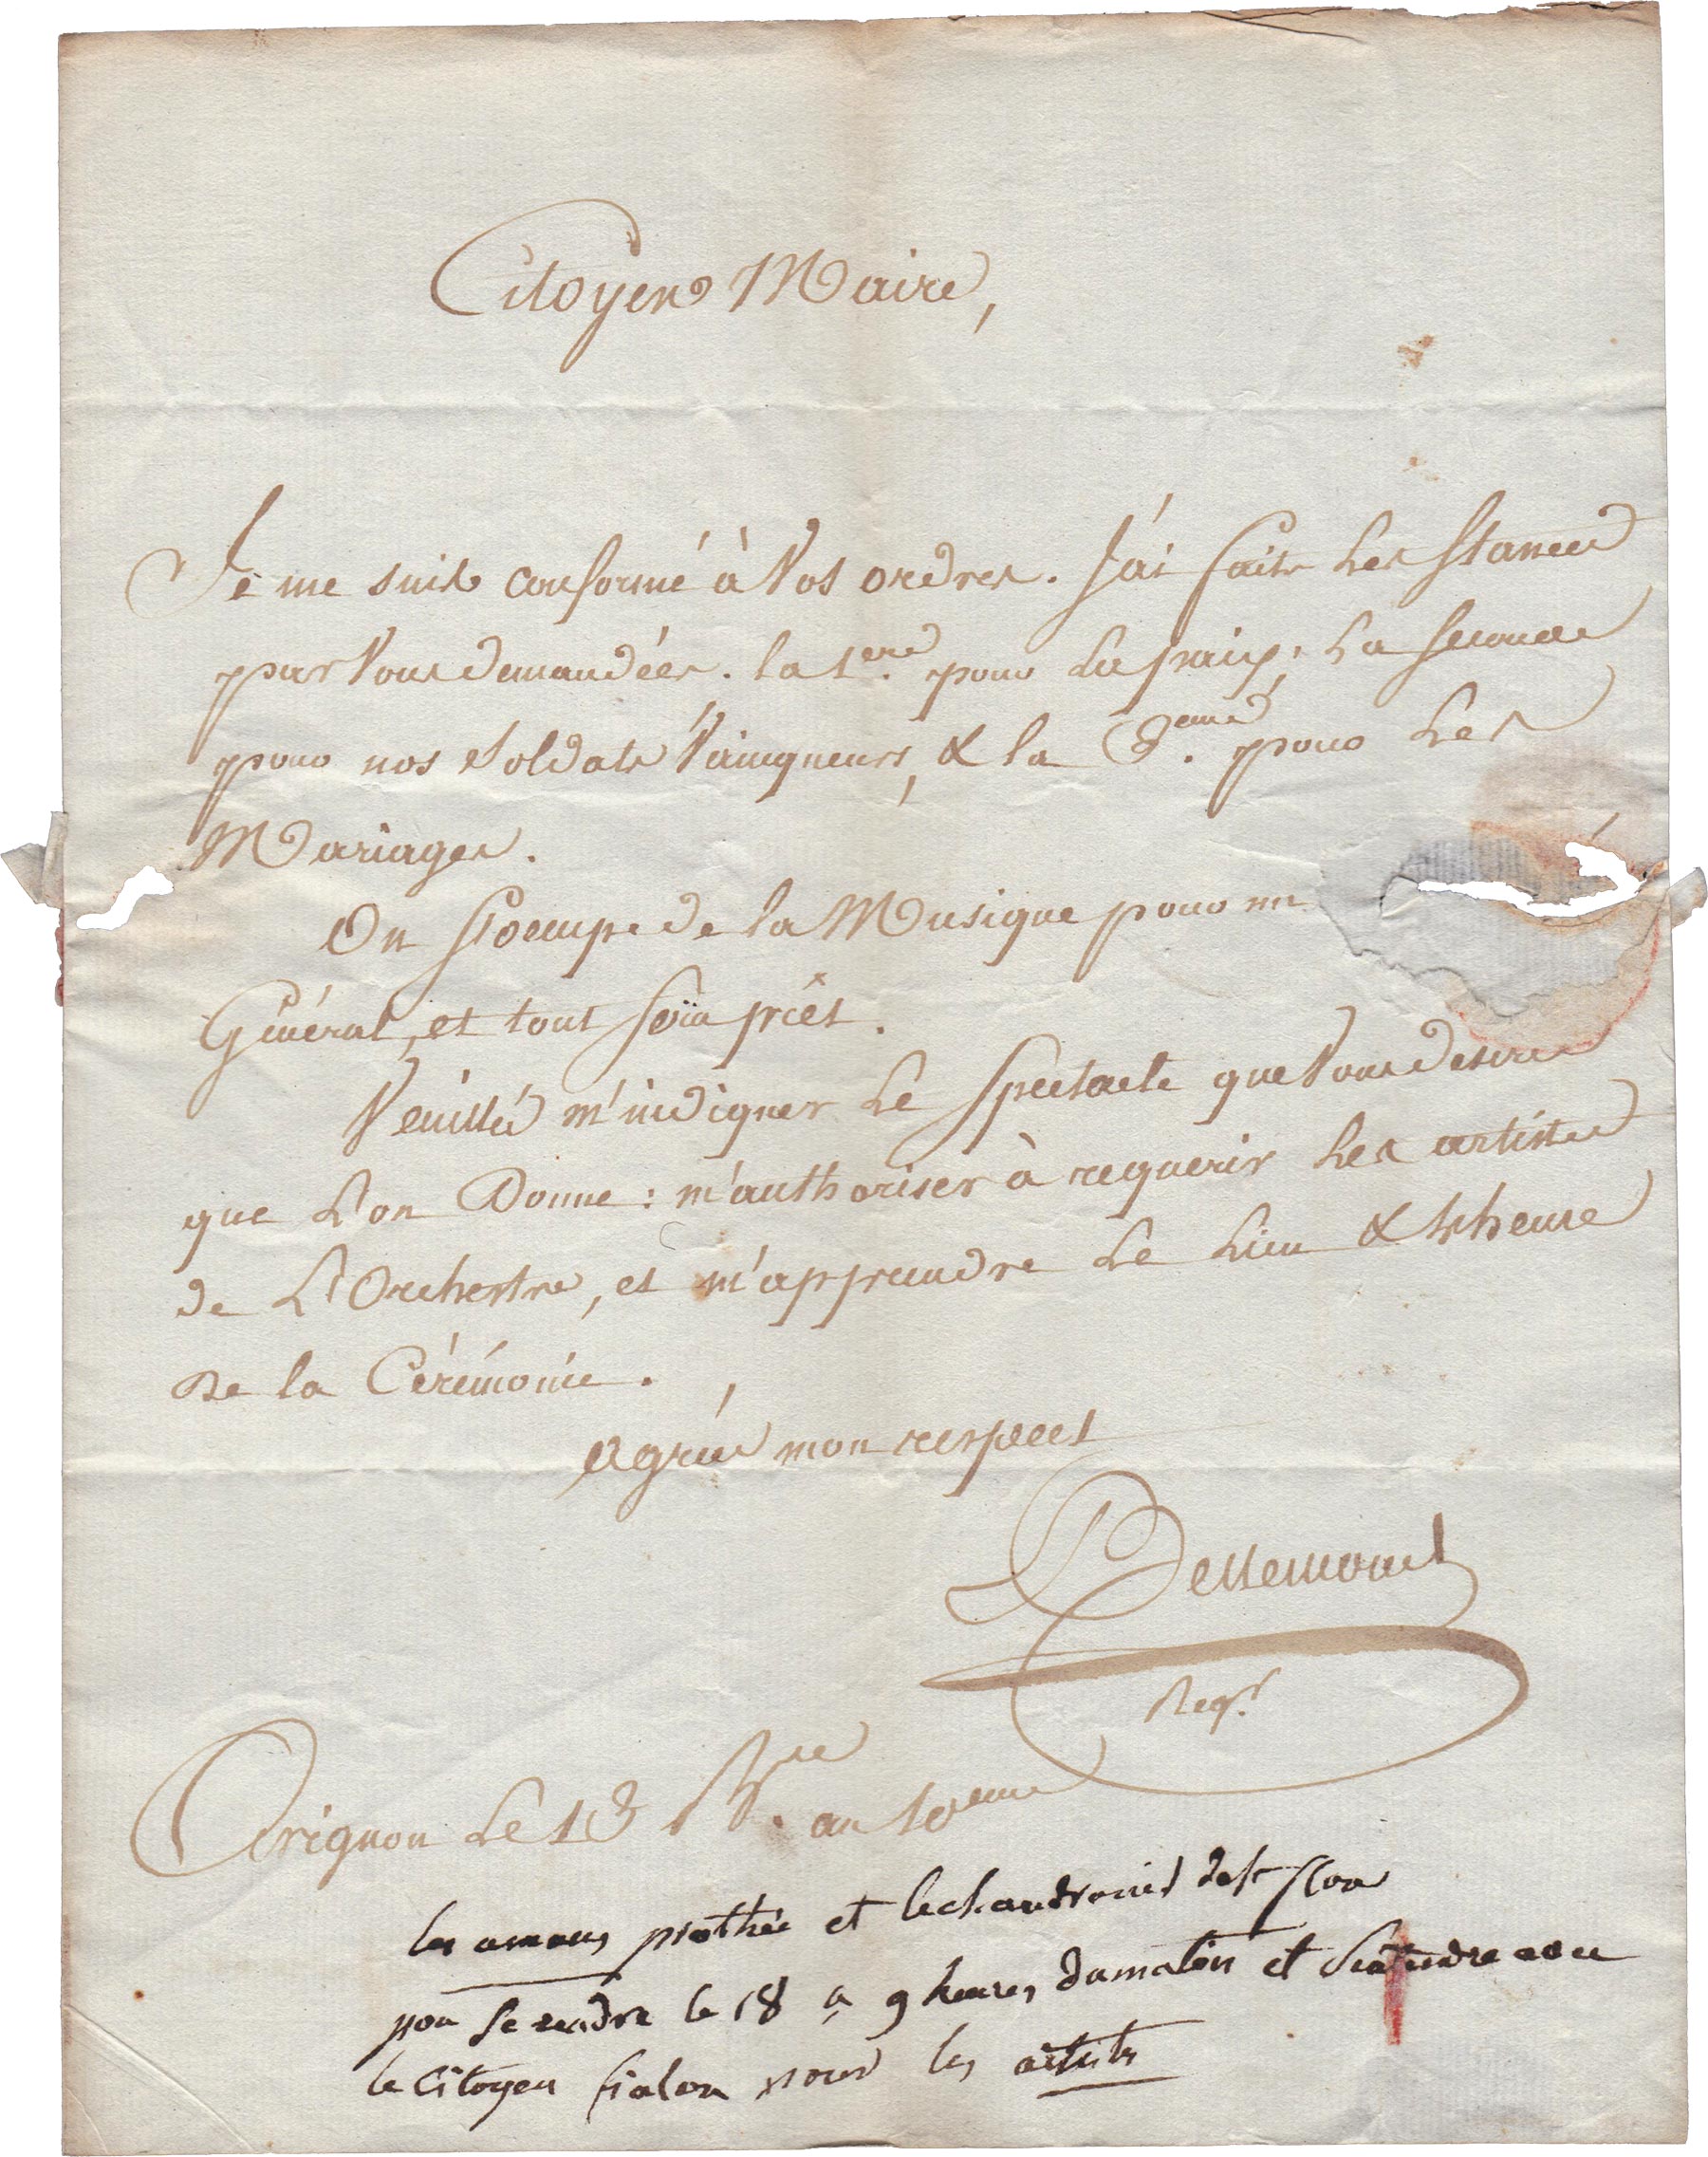 Citoyen Maire,
Je me suis conformé à Vos ordres. J'ai fait Les Stances
par Vous demandées. la 1.ere pour La paix, La Seconde
pour nos Soldats Vainqueurs, & la 3.eme pour Les
Mariages.
On S'occupe de la Musique pour un
Général, et tout Sera prêt.
Veuillé m'indiquer Le Spectacle que Vous desirez
que L'on Donne : m'authoriser à requerir Les artistes
de L'Orchestre, et m'apprendre Le Lieu & L'heure
de la Cérémonie.
Agréez mon respect
Bellemont
Reg.r
Avignon Le 13 B.re an 10eme
les amans prothée et
pour se rendre le 18 a 9 heures du matin et Sentendre avec
le Citoyen fialon pour les artistes